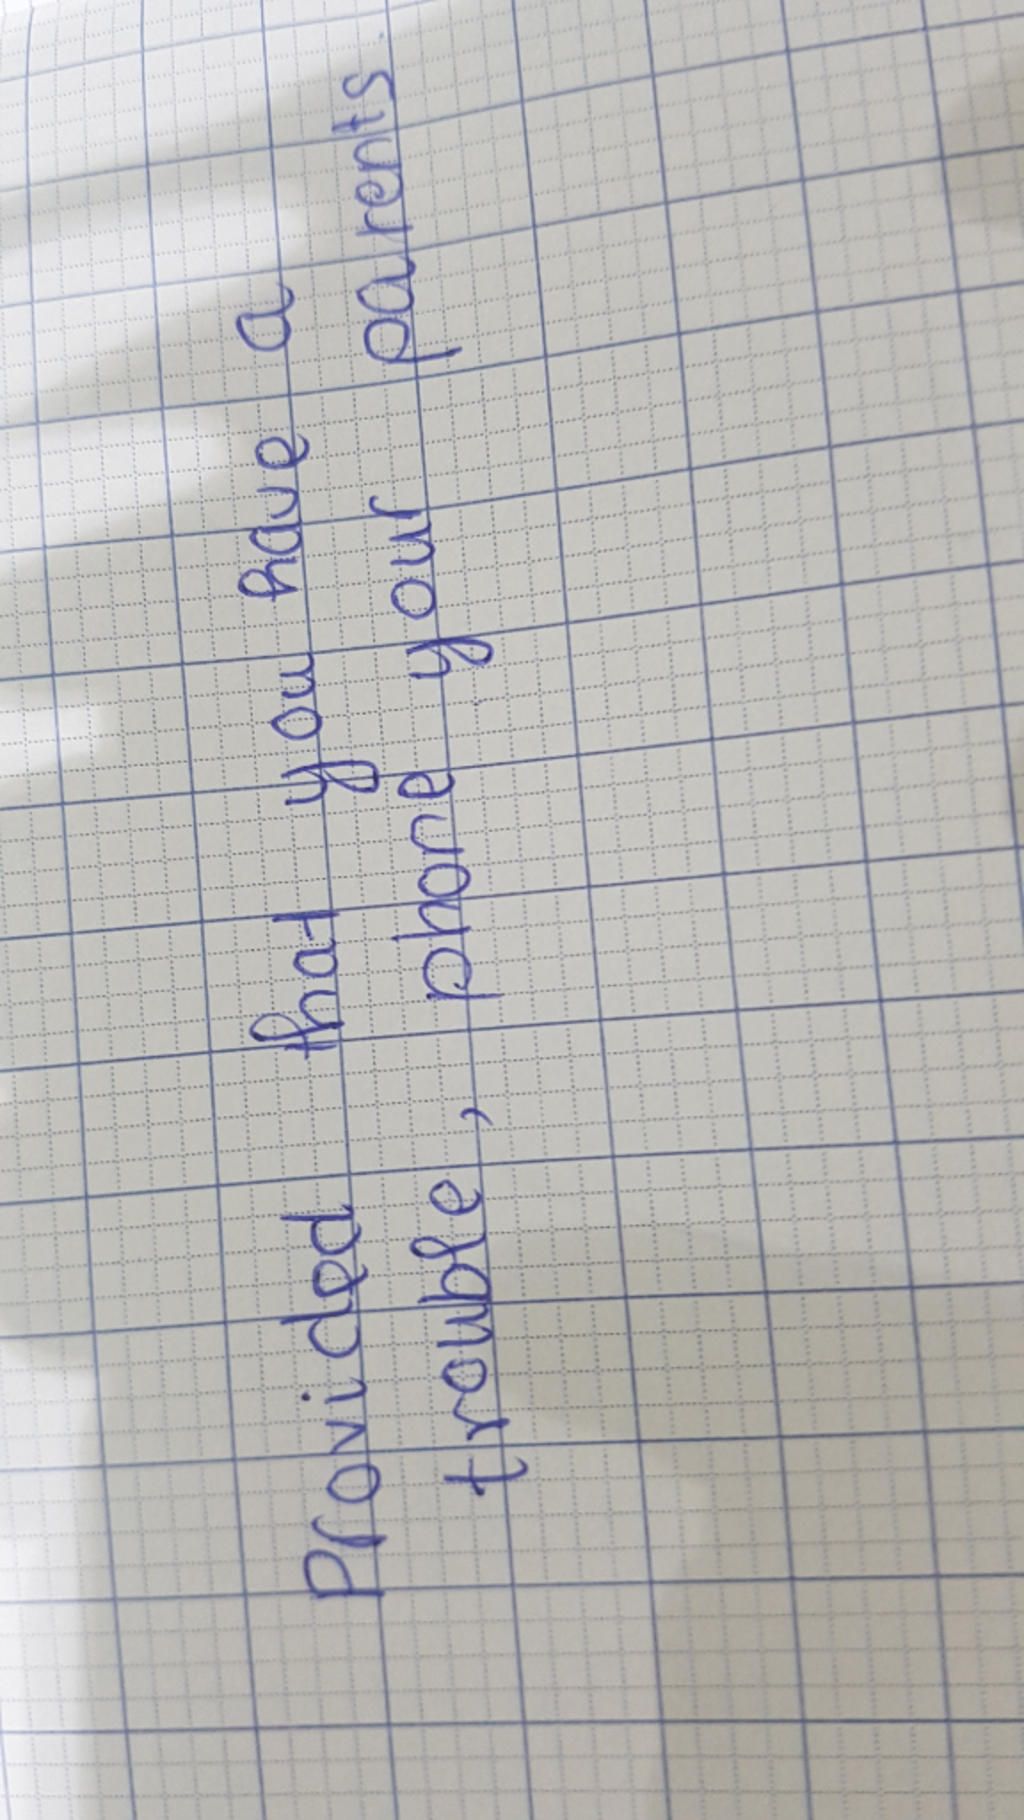 Provided that you have a
trouble, phone your parents